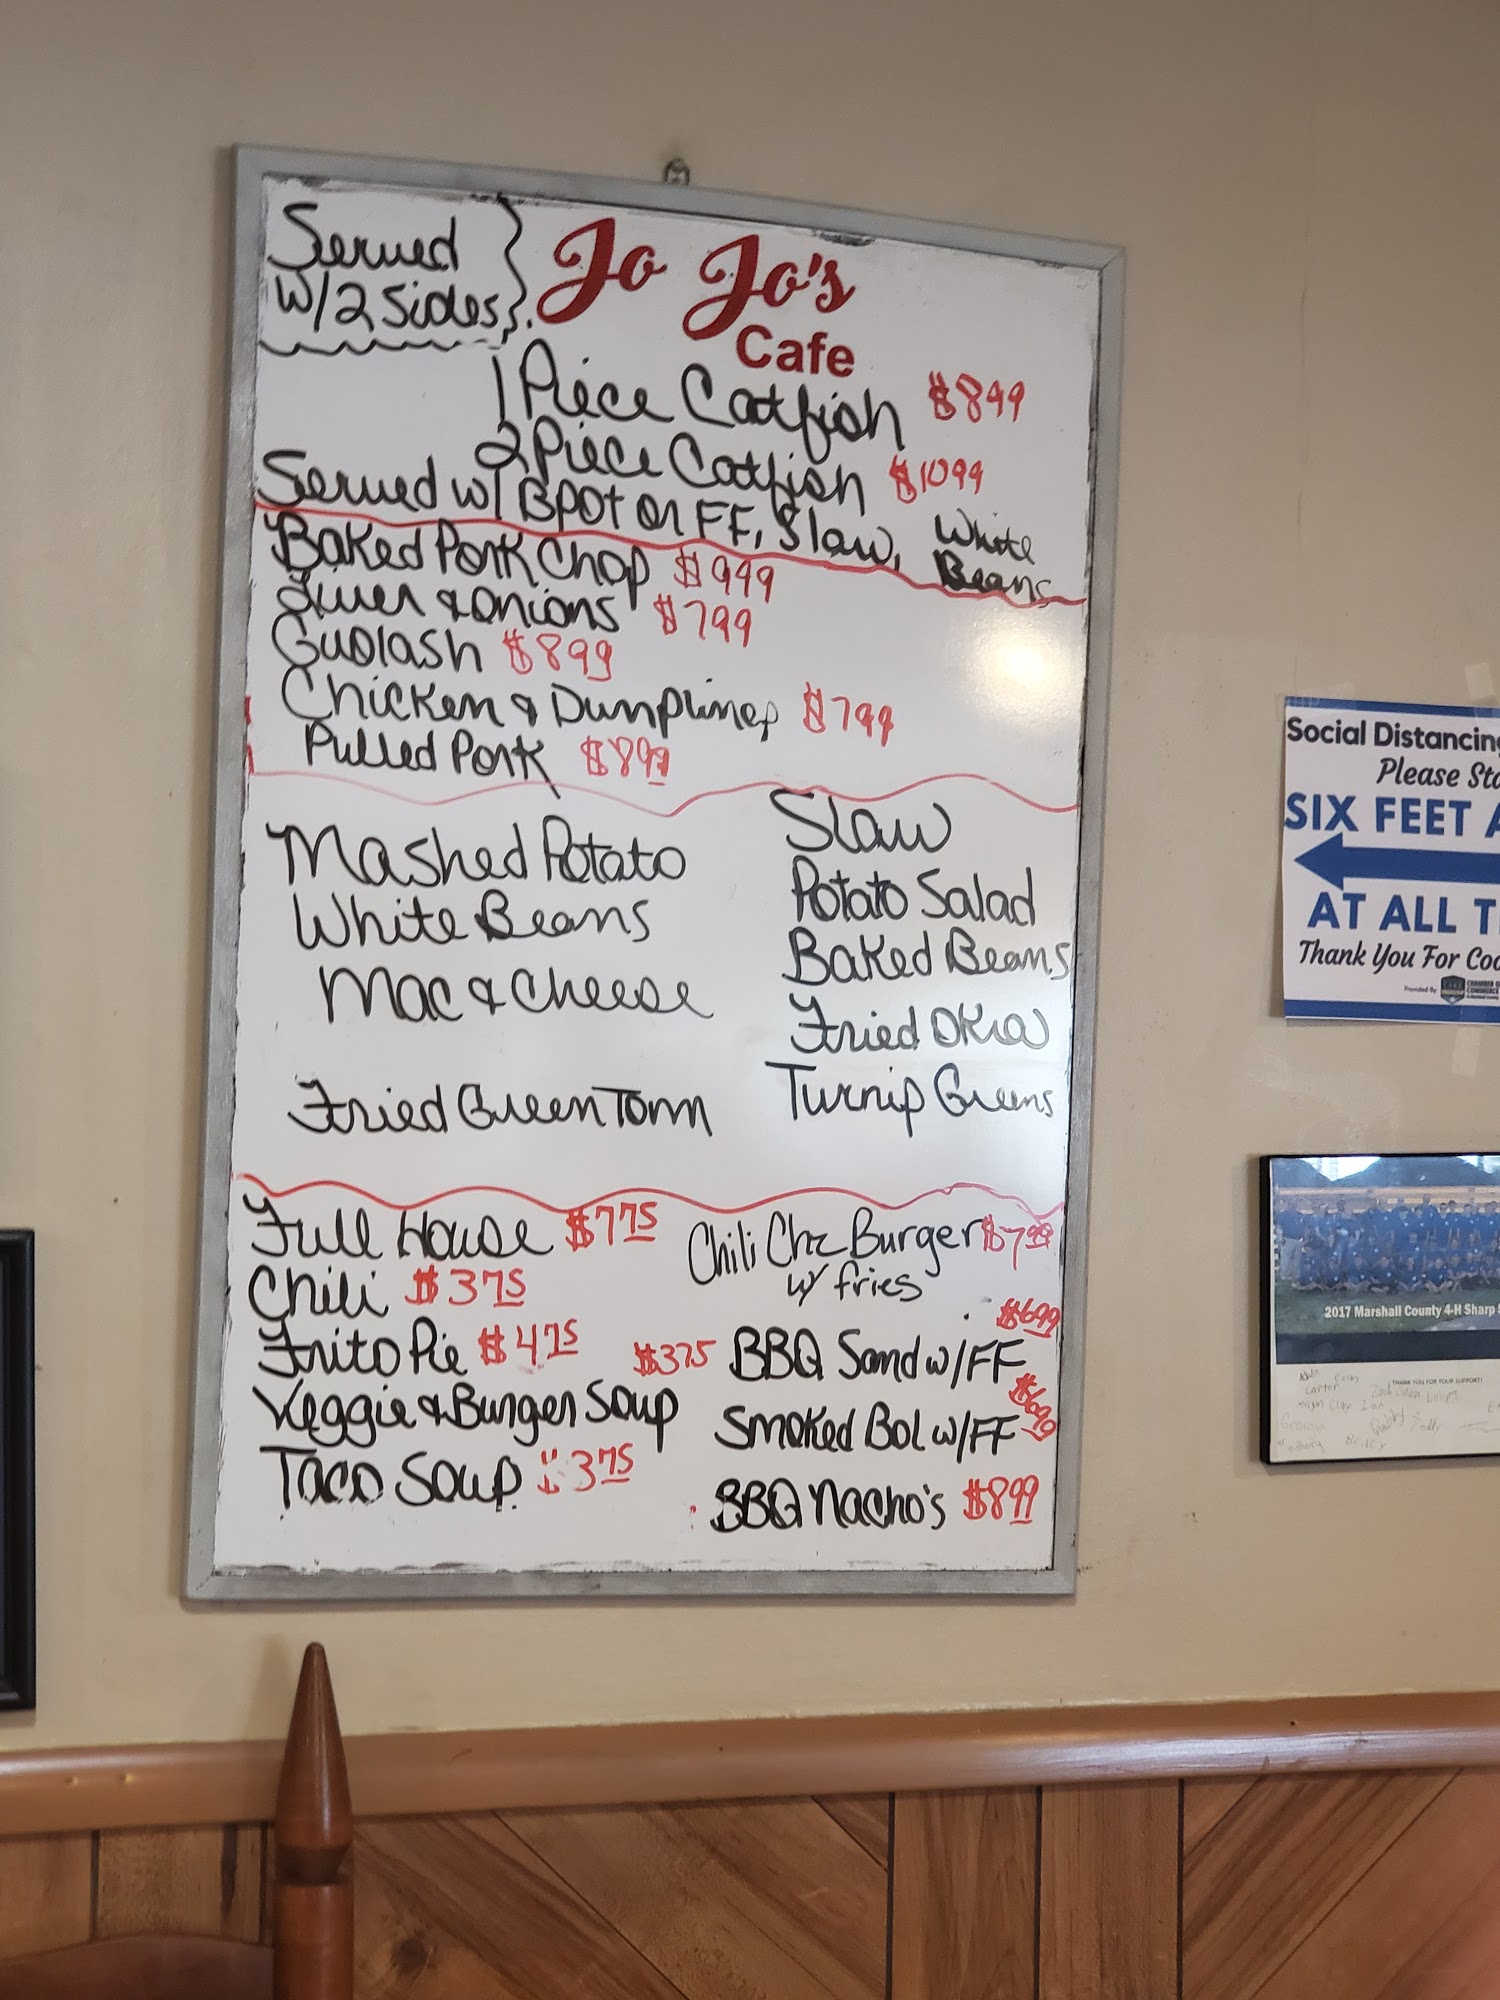 Served
W/2 Sides
Jo Jo's
Cafe
1 Piece Catfish $899
2 Piece Catfish $1099
Served w/ BPot or FF, Slaw, White Beans
Baked Pork Chop $999
Liver & Onions $799
Guolash $899
Chicken & Dumplings $799
Pulled Pork $899
Mashed Potato
White Beans
Mac & Cheese
Fried Green Tom
Slaw
Potato Salad
Baked Beans
Fried Okra
Turnip Greens
Full House $775
Chili $375
Frito Pie $475
Veggie & Burger Soup $375
Taco Soup $375
Chili Chz Burger $799
w/ fries
BBQ Sand w/FF $699
Smoked Bol w/FF $699
BBQ Nacho's $899
Social Distancing
Please Sta
SIX FEET A
AT ALL T
Thank You For Coo
Provided By
2017 Marshall County 4-H Sharp S
THANK YOU FOR YOUR SUPPORT!
Carter